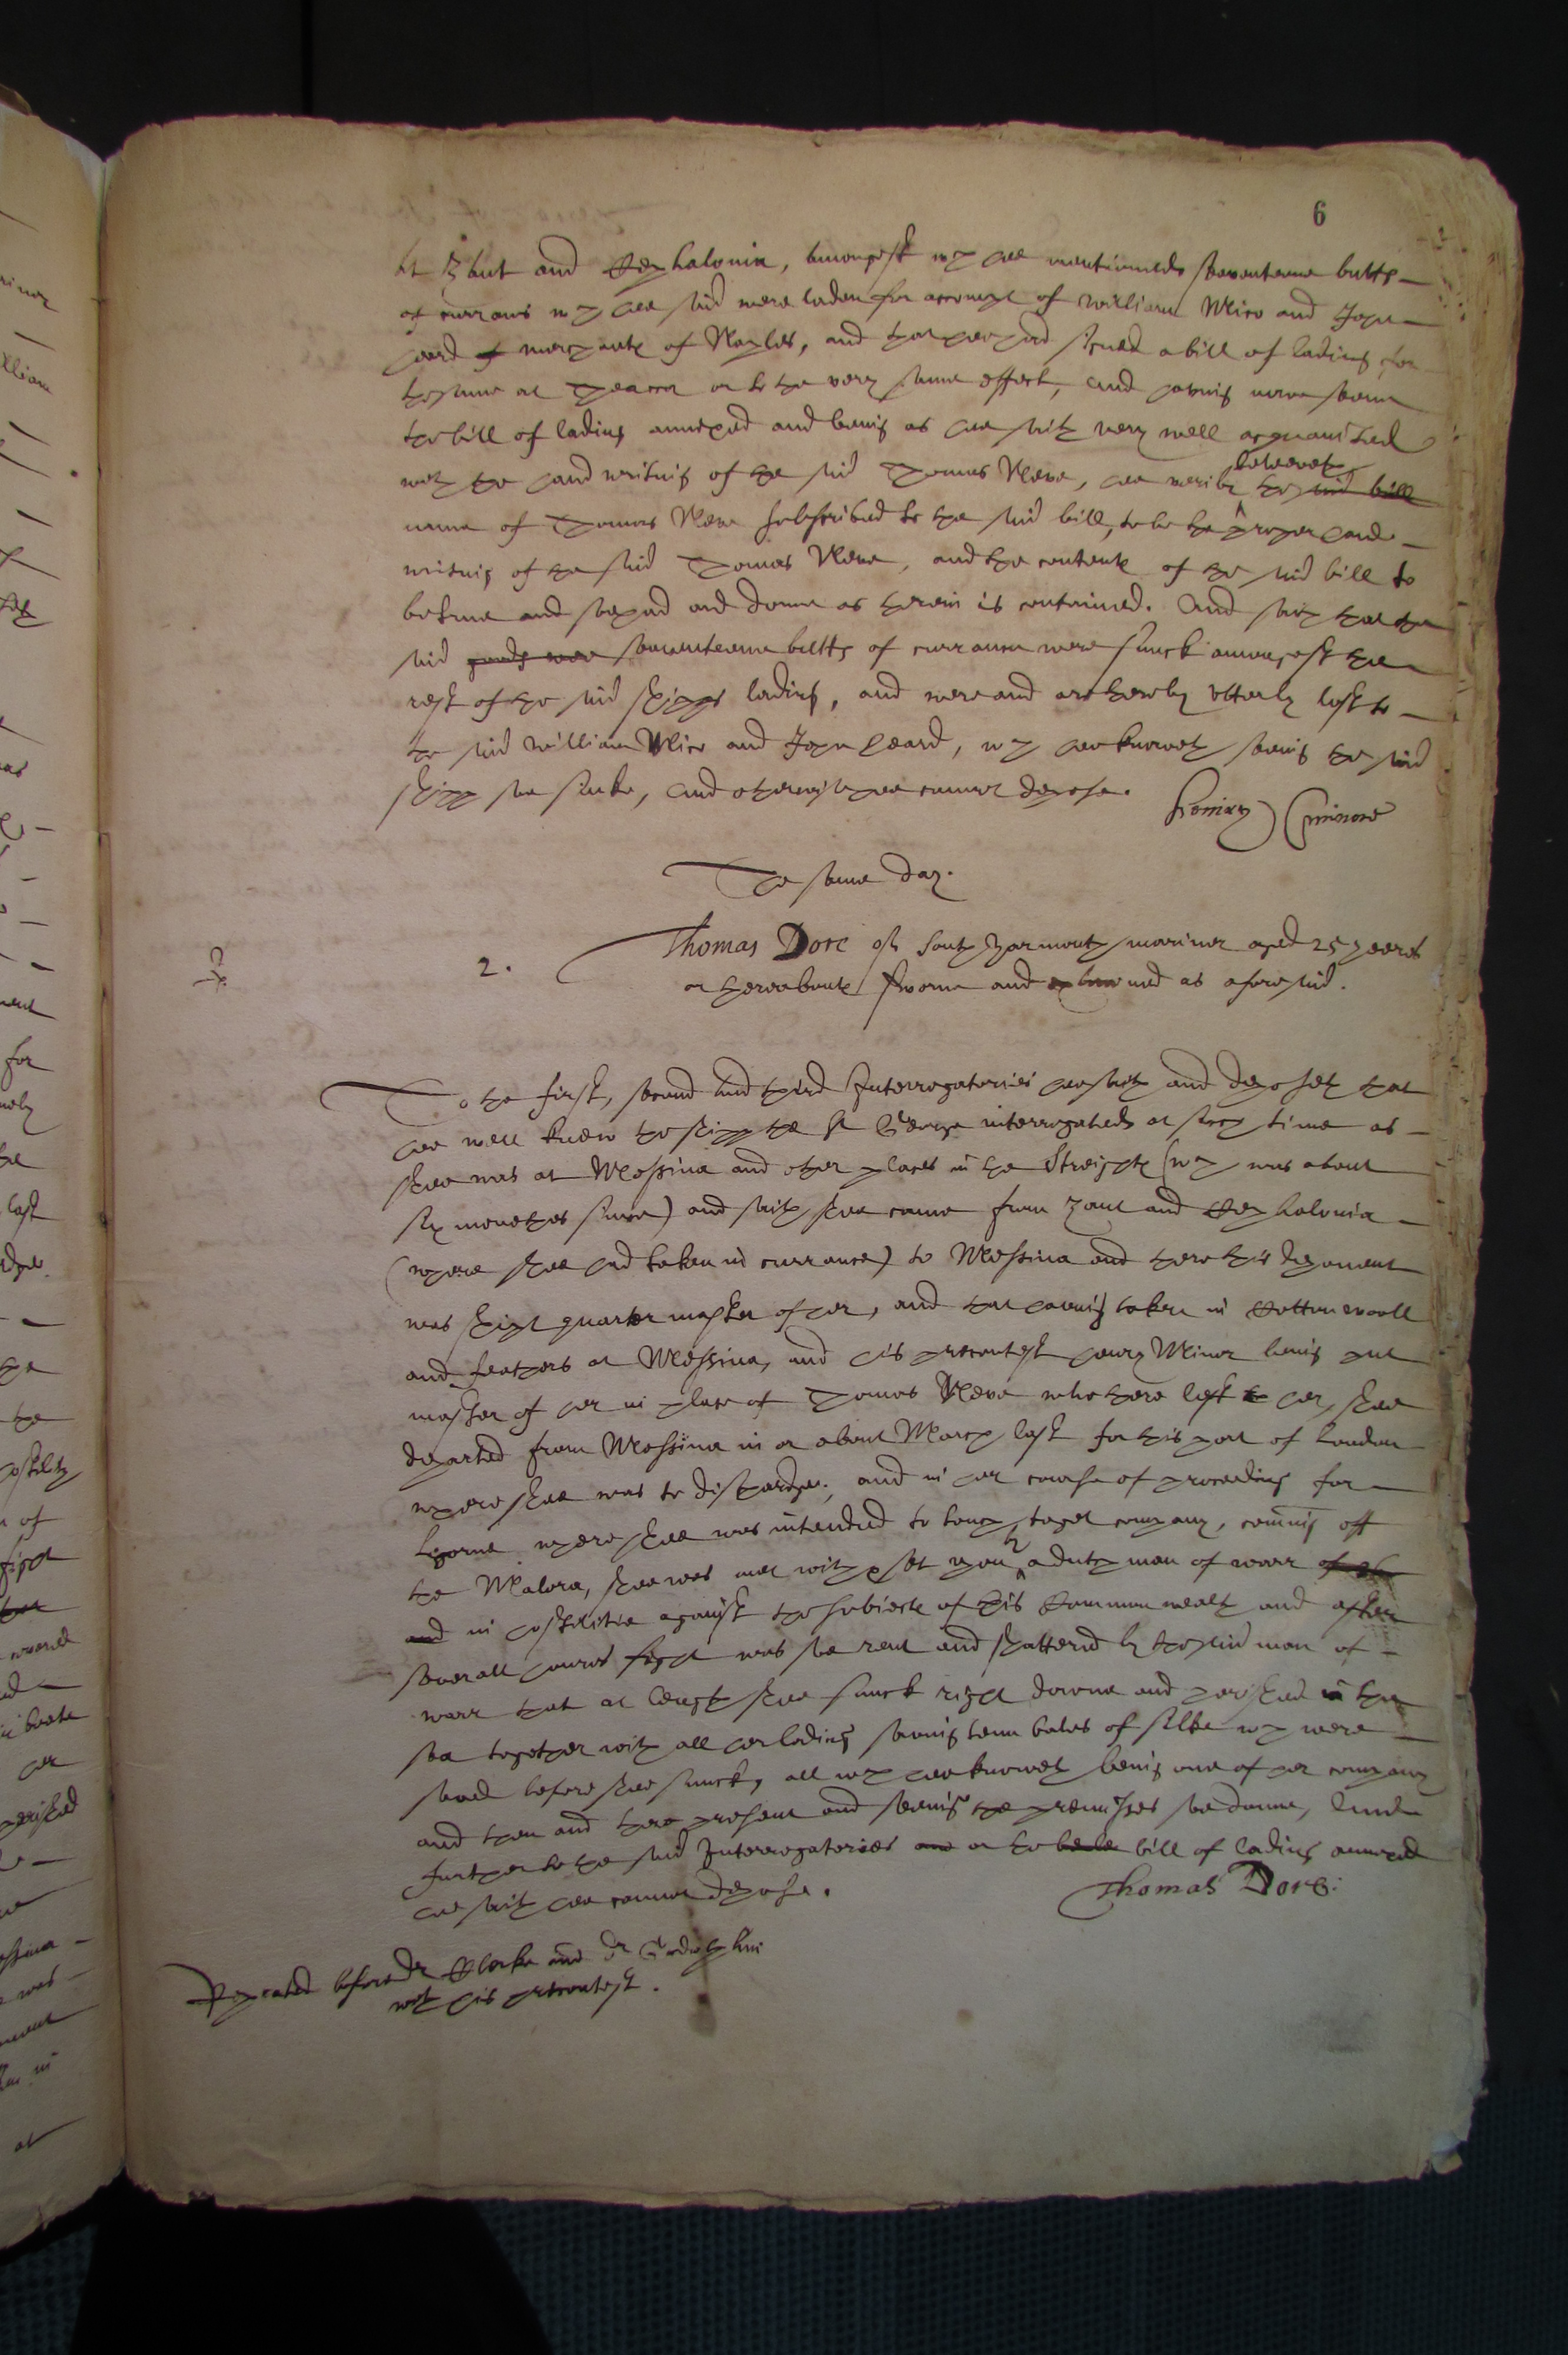 6
at Zant and Cephalonia, amongest wch hee mentioneth seventeene butts
of currans wch hee said were laden for accompt of William Mico and John
heard of merchants of Naples, and that hee had signed a bill of lading for
the same at or to the very same effect, and having nowe seene
the bill of lading annexed and being as hee saith very well acquainted
with the hand writing of the said Thomas Neve, hee verily beleeveth the said bill
name of Thomas Neve subscribed to the said bill, to be the proper hand
writing of the said Thomas Neve, and the contents of the said bill to
be true and soe had and donne as therein is contained. And saith that the
said goods were seaventeene butts of currance were sunck amongest the
rest of the said shipps lading, and were and are thereby utterly lost to
the said William Mico and John heard, wch hee knoweth seeing the said
shipp soe sinke, and otherwise hee cannot depose.
Henry Minore
The same day.
2. Thomas Dore of South Yarmouth mariner aged 25 yeeres
or thereabouts sworne and examined as aforesaid.
To the first, second and third Interrogatories hee saith and deposeth that
hee well knew the shipp the St George interrogated at such time as
shee was at Messina and other places in the Streights (wch was about
six monethes since) and saith shee came from Zant and Cephalonia
(where shee had taken in currance) to Messina and there this deponent
was shipt quarter master of her, and that having taken in Cotton wooll
and feathers at Messina, and his precontest henry Minor being put
master of her in place of Thomas Neve who there left to her, shee
departed from Messina in or about March last for this port of London
where shee was to discharge, and in her course of proceeding for
Ligorne where shee was intended to touch to get company, coming off
the Malora, shee was met with & set upon by a dutch man of warr of the
and in hostilitie against the subiects of this Common wealth and after
severall howres fight was soe rent and shattered by the said man of
warr that at length shee sunck right downe and perished in the
sea together with all her lading saving tenn bales of silke wch were
saved before shee sunck, all wch hee knoweth being one of her company
and then and there present and seeing the premisses soe donne, And
further to the said Interrogatories and or to bele bill of lading annexed
hee saith hee cannot depose.
Thomas Dore:
Repeated before dr Clerke and dr Godolphin
with his precontest.